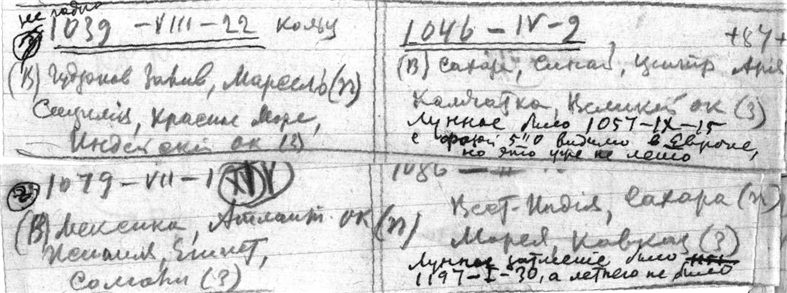 не годно
1039 – VIII – 22 кольц
(В) Гудзонов Залив, Марсель (п)
Сицилия, Красное море,
Индейский ок (З)
1046 – IV – 9 +87+
(В) Сахара, Синай, центр Азии
Камчатка, Великий ок (З)
Лунное было 1057–IX–15
с фазой 5"0 видимо в Европе,
но это уже не лето
2) 1079 – VII – 1
(В) Мексика, Атлант. ок (п)
Испания, Египет,
Сомали (З)
1086 –
Вест-Индия, Сахара (п)
Морея, Кавказ (З)
Лунное затмение было
1197–I–30, а летнего не было